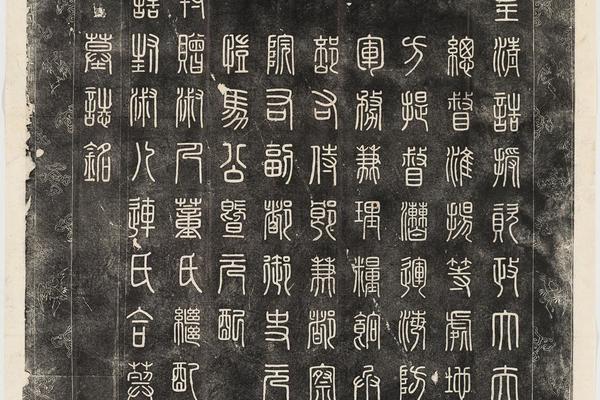 皇清誥授資政大夫
總督淮揚等處地
方提督漕運海防
軍務兼理糧餉兵
部右侍郎兼都察
院右副都御史元
愷馬公暨元配
贈淑人董氏繼配
誥封淑人連氏合葬
墓誌銘